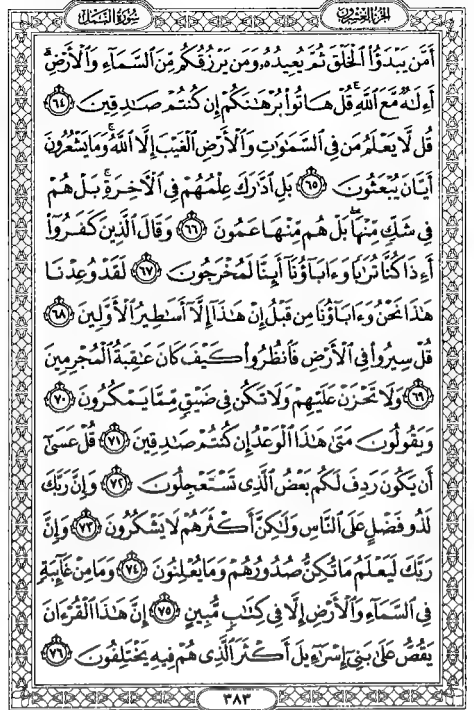 الجزء العشرون
سورة النمل
أَمَّن يَبْدَؤُا۟ ٱلْخَلْقَ ثُمَّ يُعِيدُهُۥ وَمَن يَرْزُقُكُم مِّنَ ٱلسَّمَآءِ وَٱلْأَرْضِ ۗ
أَءِلَٰهٌ مَّعَ ٱللَّهِ ۚ قُلْ هَاتُوا۟ بُرْهَٰنَكُمْ إِن كُنتُمْ صَٰدِقِينَ ﴿٦٤﴾
قُل لَّا يَعْلَمُ مَن فِى ٱلسَّمَٰوَٰتِ وَٱلْأَرْضِ ٱلْغَيْبَ إِلَّا ٱللَّهُ ۚ وَمَا يَشْعُرُونَ
أَيَّانَ يُبْعَثُونَ ﴿٦٥﴾ بَلِ ٱدَّٰرَكَ عِلْمُهُمْ فِى ٱلْـَٔاخِرَةِ ۚ بَلْ هُمْ
فِى شَكٍّ مِّنْهَا ۖ بَلْ هُم مِّنْهَا عَمُونَ ﴿٦٦﴾ وَقَالَ ٱلَّذِينَ كَفَرُوٓا۟
أَءِذَا كُنَّا تُرَٰبًا وَءَابَآؤُنَآ أَئِنَّا لَمُخْرَجُونَ ﴿٦٧﴾ لَقَدْ وُعِدْنَا
هَٰذَا نَحْنُ وَءَابَآؤُنَا مِن قَبْلُ إِنْ هَٰذَآ إِلَّآ أَسَٰطِيرُ ٱلْأَوَّلِينَ ﴿٦٨﴾
قُلْ سِيرُوا۟ فِى ٱلْأَرْضِ فَٱنظُرُوا۟ كَيْفَ كَانَ عَٰقِبَةُ ٱلْمُجْرِمِينَ
﴿٦٩﴾ وَلَا تَحْزَنْ عَلَيْهِمْ وَلَا تَكُن فِى ضَيْقٍ مِّمَّا يَمْكُرُونَ ﴿٧٠﴾
وَيَقُولُونَ مَتَىٰ هَٰذَا ٱلْوَعْدُ إِن كُنتُمْ صَٰدِقِينَ ﴿٧١﴾ قُلْ عَسَىٰٓ
أَن يَكُونَ رَدِفَ لَكُم بَعْضُ ٱلَّذِى تَسْتَعْجِلُونَ ﴿٧٢﴾ وَإِنَّ رَبَّكَ
لَذُو فَضْلٍ عَلَى ٱلنَّاسِ وَلَٰكِنَّ أَكْثَرَهُمْ لَا يَشْكُرُونَ ﴿٧٣﴾ وَإِنَّ
رَبَّكَ لَيَعْلَمُ مَا تُكِنُّ صُدُورُهُمْ وَمَا يُعْلِنُونَ ﴿٧٤﴾ وَمَا مِنْ غَآئِبَةٍ
فِى ٱلسَّمَآءِ وَٱلْأَرْضِ إِلَّا فِى كِتَٰبٍ مُّبِينٍ ﴿٧٥﴾ إِنَّ هَٰذَا ٱلْقُرْءَانَ
يَقُصُّ عَلَىٰ بَنِىٓ إِسْرَٰٓءِيلَ أَكْثَرَ ٱلَّذِى هُمْ فِيهِ يَخْتَلِفُونَ ﴿٧٦﴾
٣٨٣